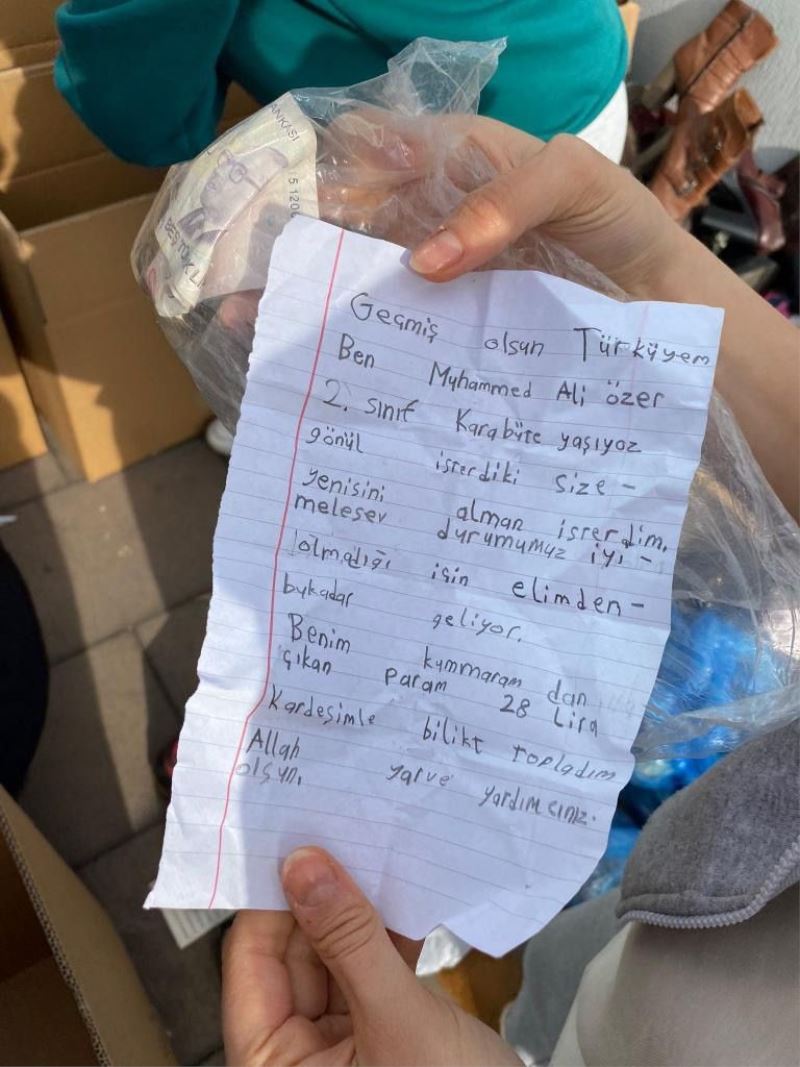 ANKASI
5 120
BEŞ TÜRK Lİ
Geçmiş olsun Türküyem
Ben Muhammed Ali özer
2. sınıf Karabüte yaşıyoz
gönül isterdiki size -
yenisini alman isterdim.
melesev durumumuz iyi -
olmadığı için elimden -
bukadar geliyor.
Benim kummaram dan
çıkan param 28 Lira
Kardeşimle bilikt topladım
Allah yarve yardımcınız.
olsun.